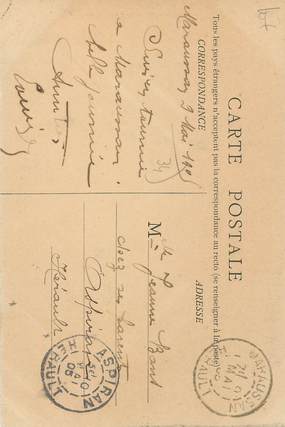 CARTE POSTALE
Tous les pays étrangers n'acceptent pas la correspondance au recto (se renseigner à la poste)
CORRESPONDANCE
ADRESSE
Maraussan 2 Mai 190
34
à Maraussan.
belle journée
Amitiés
Louise
M lle Jeanne
chez ses parents
Aspiran
Hérault
ASPIRAN
HERAULT
MARAUSSAN
HERAULT